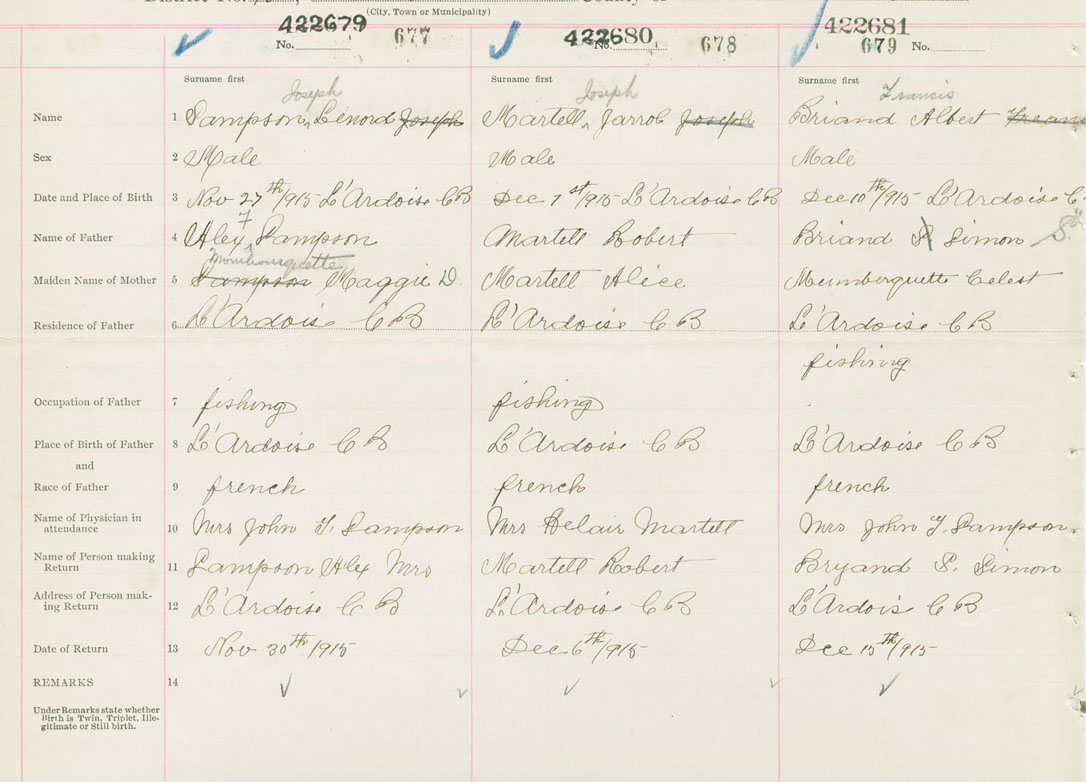 District No. County of
(City, Town or Municipality)
422679 422680 422681
No. 677 No. 678 679 No.
Surname first Surname first Surname first
Joseph Joseph Francis
Name 1 Sampson, Lenord Joseph Martell, Jarrob Joseph Briand Albert
Sex 2 Male Male Male
Date and Place of Birth 3 Nov 27th/915 L'Ardoise CB Dec 1st/915 L'Ardoise CB Dec 10th/915 L'Ardoise C
Name of Father 4 Alex F Sampson Martell Robert Briand S Simon S
Mombourquette
Maiden Name of Mother 5 Sampson Maggie D Martell Alice Mumberquette Celest
Residence of Father 6 L'Ardoise CB L'Ardoise CB L'Ardoise CB
fishing
Occupation of Father 7 fishing fishing
Place of Birth of Father 8 L'Ardoise CB L'Ardoise CB L'Ardoise CB
and
Race of Father 9 french french french
Name of Physician in
attendance 10 Mrs John Y. Sampson Mrs Belair Martell Mrs John Y. Sampson
Name of Person making
Return 11 Sampson Alex Mrs Martell Robert Bryand S. Simon
Address of Person mak-
ing Return 12 L'Ardoise CB L'Ardoise CB L'Ardois CB
Date of Return 13 Nov 30th/915 Dec 6th/915 Dec 15th/915
REMARKS 14
Under Remarks state whether
Birth is Twin, Triplet, Ille-
gitimate or Still birth.